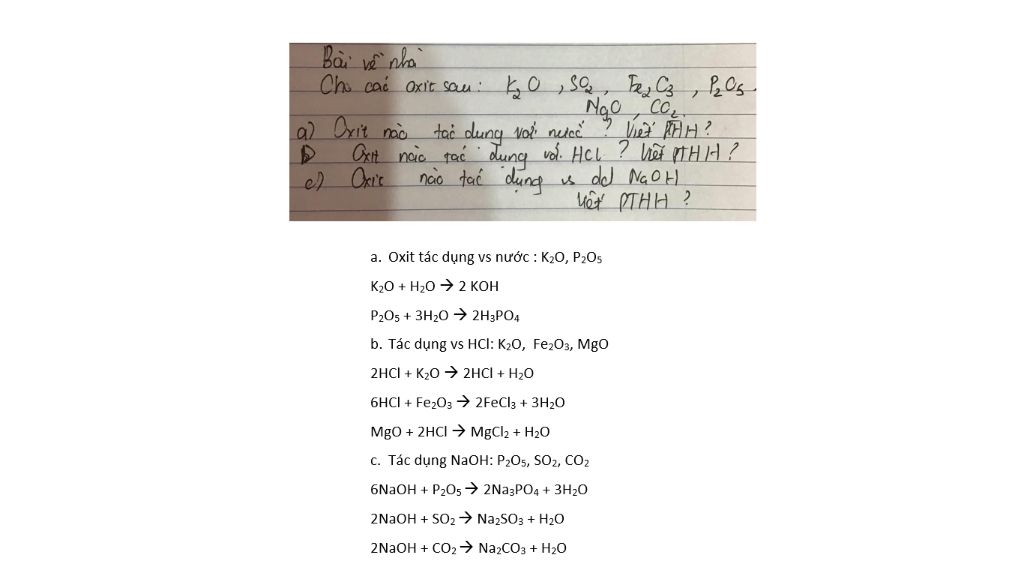 Bài về nhà
Cho các oxit sau: K2O, SO2, Fe2O3, P2O5.
MgO, CO2
a) Oxit nào tác dụng với nước? Viết PTHH?
b Oxit nào tác dụng với HCl? Viết PTHH?
c) Oxit nào tác dụng vs dd NaOH
Viết PTHH?
a. Oxit tác dụng vs nước : K₂O, P₂O₅
K₂O + H₂O → 2 KOH
P₂O₅ + 3H₂O → 2H₃PO₄
b. Tác dụng vs HCl: K₂O, Fe₂O₃, MgO
2HCl + K₂O → 2HCl + H₂O
6HCl + Fe₂O₃ → 2FeCl₃ + 3H₂O
MgO + 2HCl → MgCl₂ + H₂O
c. Tác dụng NaOH: P₂O₅, SO₂, CO₂
6NaOH + P₂O₅ → 2Na₃PO₄ + 3H₂O
2NaOH + SO₂ → Na₂SO₃ + H₂O
2NaOH + CO₂ → Na₂CO₃ + H₂O